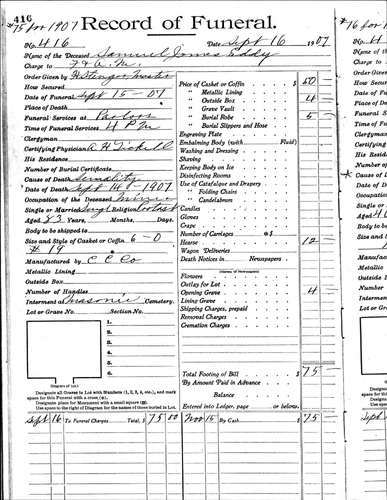 416
#75 for 1907 Record of Funeral. #76 for 1
No. 416 Date Sept 16 1907 No.
Name of the Deceased Samuel Jones Eddy Name of
Charge to F & A. M. Charge to
Order Given by H Stenger Master Order Gi
How Secured How Secu
Date of Funeral Sept 15 - 07 Date of F
Place of Death Place of
Funeral Services at Parlors Funeral S
Time of Funeral Services 4 PM Time of F
Clergyman Clergyma
Certifying Physician A H Tickell Certifying
His Residence His Resid
Number of Burial Certificate Number o
Cause of Death Senility Cause of
Date of Death Sept 14 - 1907 Date of D
Occupation of the Deceased Miner Occupatio
Single or Married Single Religion Protest Single or
Aged 83 Years, Months, Days. Aged
Body to be shipped to Body to b
Size and Style of Casket or Coffin 6-0 Size and
#19
Manufactured by C C Co Manufact
Metallic Lining Metallic
Outside Box Outside
Number of Handles Number
Interment at Masonic Cemetery. Interment
Lot or Grave No. Section No. Lot or Gr
1.
2.
3.
4.
5.
6.
7.
8.
(Diagram of Lot.)
Designate all Graves in Lot with Numbers (1, 2, 3, 4, etc.), and mark
space for this Funeral with a cross (+).
Designate place for Monument with a small square (□).
Use space to the right of Diagram for the names of those buried in Lot.
Price of Casket or Coffin $ 50 -
" Metallic Lining
" Outside Box 4 -
" Grave Vault
" Burial Robe 5 -
" Burial Slippers and Hose
Engraving Plate
Embalming Body (with Fluid)
Washing and Dressing
Shaving
Keeping Body on Ice
Disinfecting Rooms
Use of Catafalque and Drapery
" Folding Chairs
" Candelabrum
Candles
Gloves
Crape
Number of Carriages @ $
Hearse 12 -
Wagon Deliveries
Death Notices in Newspapers
(Names of Newspapers)
Flowers
Outlay for Lot
Opening Grave 4 -
Lining Grave
Shipping Charges, prepaid
Removal Charges
Cremation Charges
Total Footing of Bill $ 75 -
By Amount Paid in Advance
Balance
Entered into Ledger, page or below.
Sept 16 To Funeral Charges Total, $ 75 00 Nov 15 By Cash $ 75 - Sept